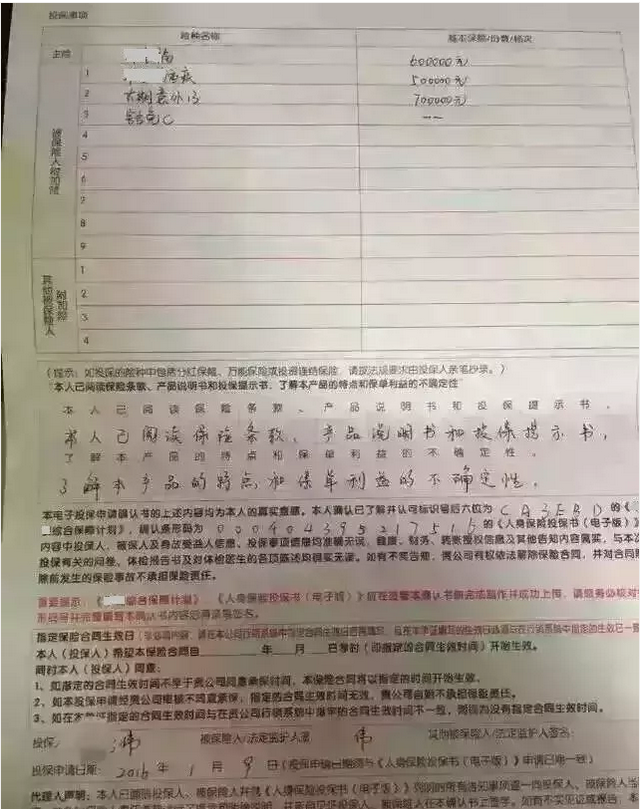 投保事项
险种名称 基本保额/份数/档次
主险 600000元
1 500000元
2 长期意外13 700000元
3 豁免C --
4
5
6
7
8
9
被保险人附加险
其他被保险人附加险
1
2
3
4
(提示:如投保的险种中包括分红保险、万能保险或投资连结保险,请按法规要求由投保人亲笔抄录。)
"本人已阅读保险条款、产品说明书和投保提示书,了解本产品的特点和保单利益的不确定性"
本人已阅读保险条款、产品说明书和投保提示书,
本人已阅读保险条款,产品说明书和投保提示书,
了解本产品的特点和保单利益的不确定性。
了解本产品的特点和保单利益的不确定性。
本电子投保申请确认书的上述内容均为本人的真实意愿。本人确认已了解并认可标识号后六位为CA3EBD的《
综合保障计划》,确认条形码为 的《人身保险投保书(电子版)》
内容中投保人、被保人及身故受益人信息、投保事项请册均准确无误,健康、财务、转账授权信息及其他告知内容属实,与本次
投保有关的问卷、体检报告书及对体检医生的各项陈述均确实无误。如有不实告知,贵公司有权依法解除保险合同,并对合同解
除前发生的保险事故不承担保险责任。
重要提示:《 综合保障计划》《人身保险投保书(电子版)》应在签署本确认书前完成制作并成功上传,请您务必核对
形码号并完整填写本确认书内容后再亲笔签名。
指定保险合同生效日
本人(投保人)希望本保险合同自 年 月 日零时(即指定的合同生效时间)开始生效。
同时本人(投保人)同意:
1、如指定的合同生效时间不早于贵公司同意承保时间,本保险合同将以指定的时间开始生效。
2、如本投保申请经贵公司审核不同意承保,指定的合同生效时间无效,贵公司自始不承担保险责任。
3、如在本 指定的合同生效时间与在贵公司行销系统中指定的生效时间不一致,则视为没有指定合同生效时间。
投保 伟 被保险人/法定监护人签 伟 其他被保险人/法定监护人签名:
投保申请日期: 2016年1月9日(投保申请日期须与《人身保险投保书(电子版)》申请日期一致)
代理人声明:本人已面晤投保人、被保险人并就《人身保险投保书(电子版)》列明的所有告知事项逐一向投保人、被保险人当